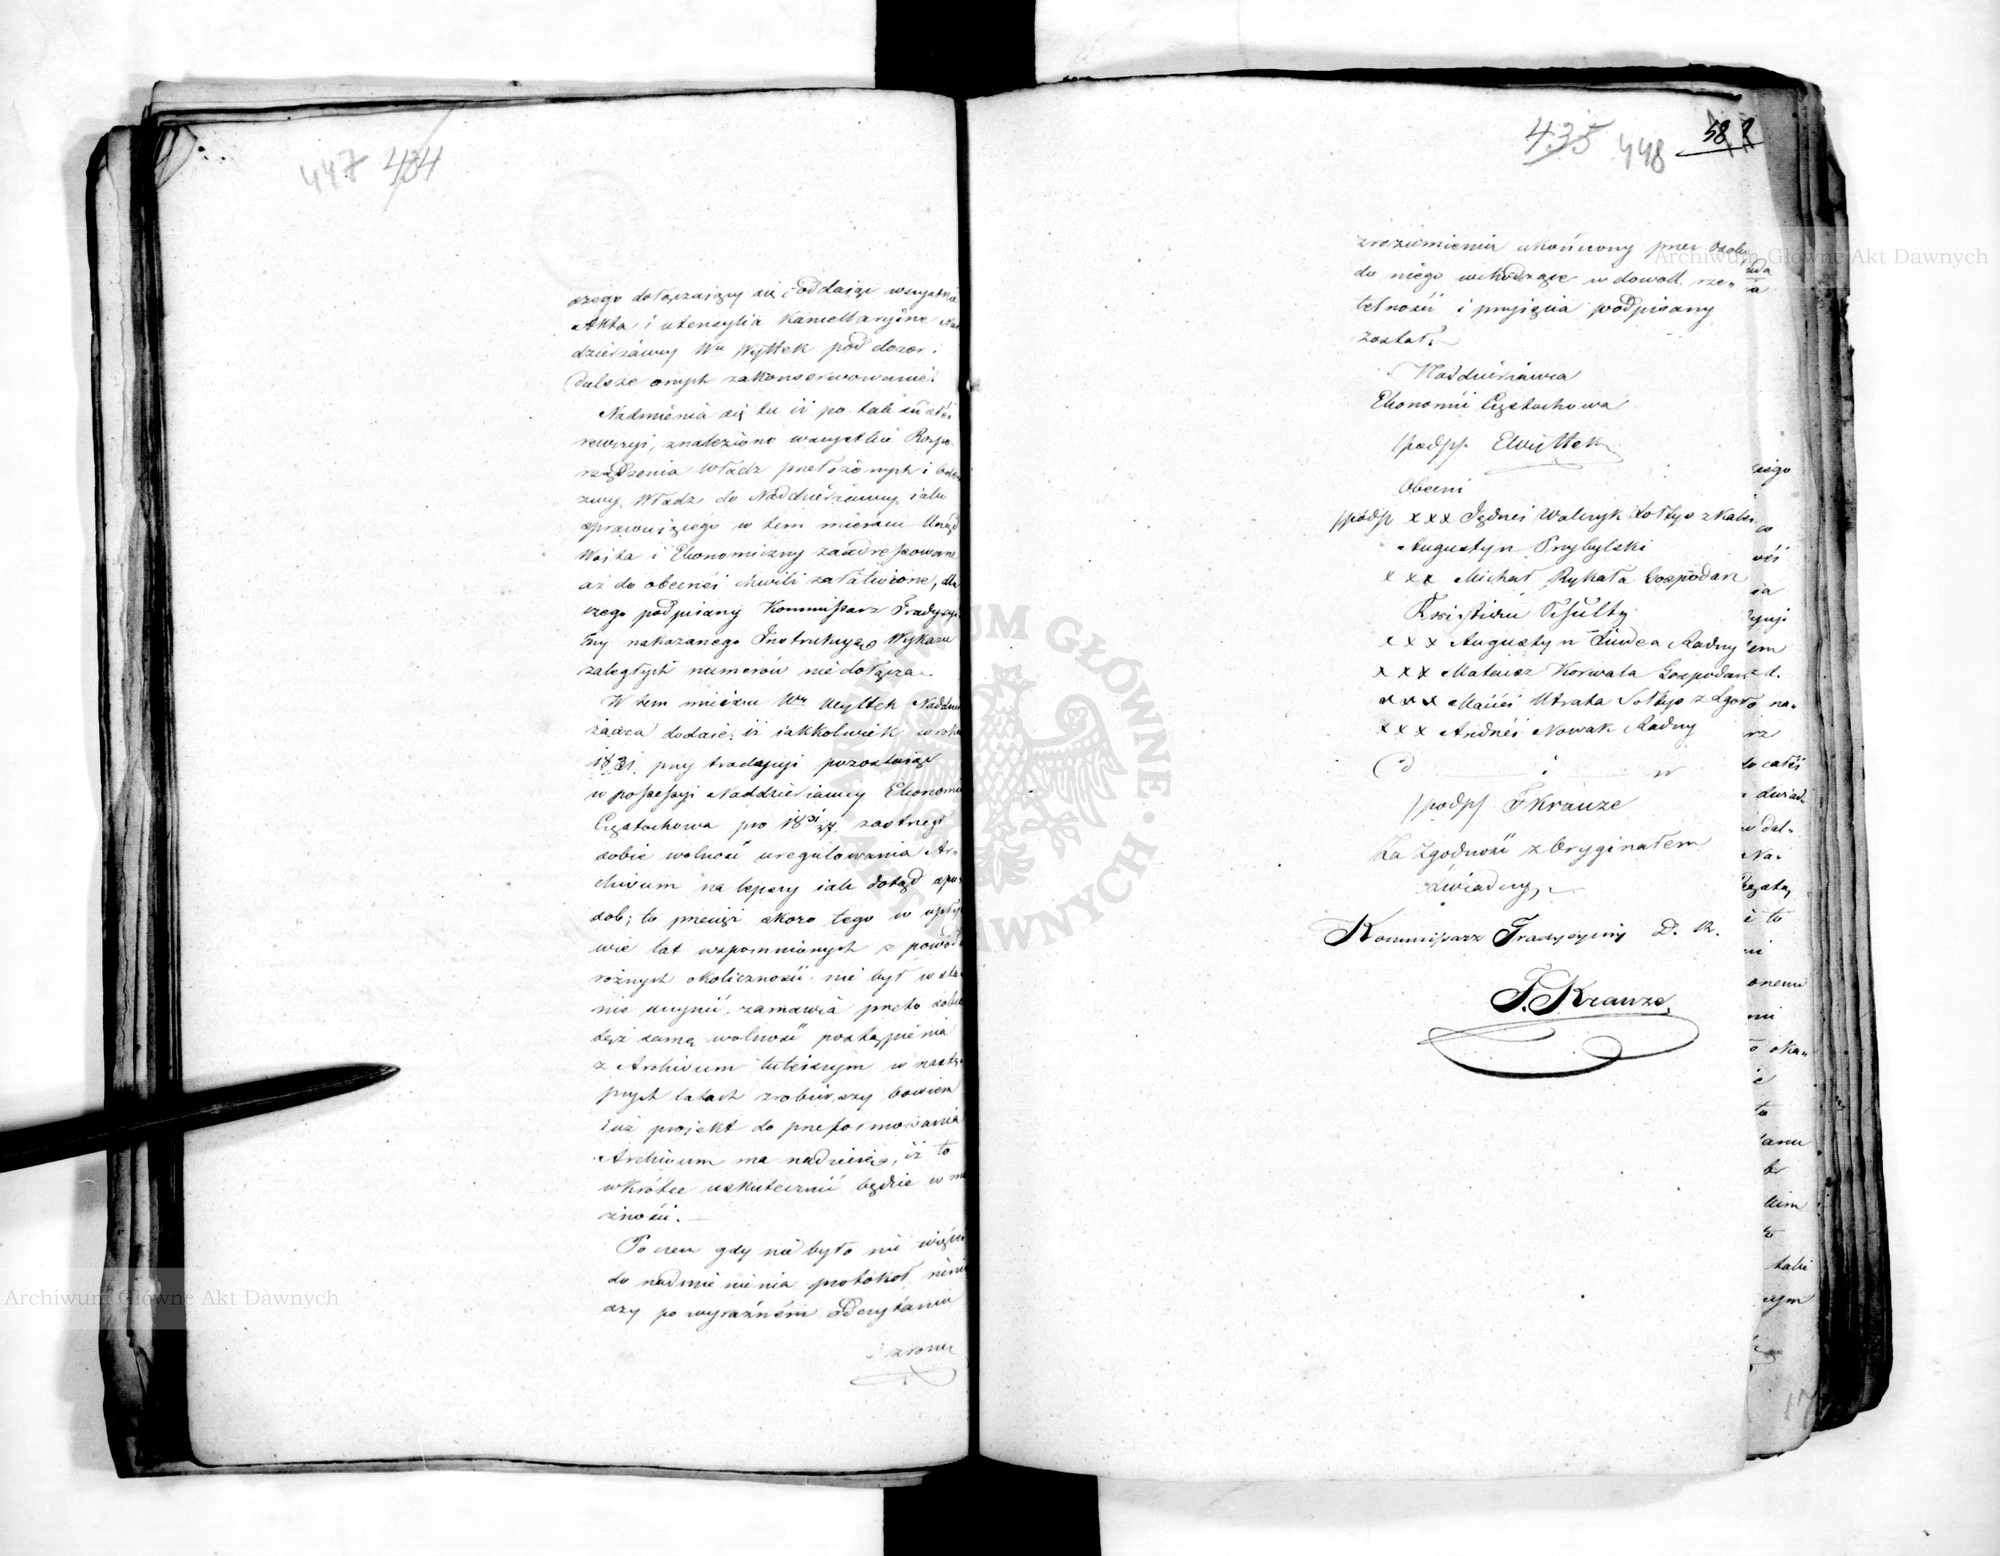 447 434
szego dołączaiący się oddaiąc wszystkie
Akta i utensylia Kancellaryine Nad
dzierżawcy Wu Wyttek pod dozor i
dalsze onych zakonserwowanie.
Nadmienia się tu iż po takiéi całéi
rewizyi, znaleziono wszystkie Rozpo
rządzenia Władz przełożonych i Ode
zwy Władz do Naddzierżawcy iako
sprawuiącego w tem miescu Urząd
Woita i Ekonomiczny zaadressowane
aż do obecnéi chwili załatwione, dla
czego podpisany Kommissarz Tradycyi
ny nakazanego Instrukcyą Wykazu
zaległych numerów nie dołącza.
W tem mieiscu Wny Wyttek Naddzier
żawca dodaie, iż iakkolwiek w roku
1831 przy tradycyi pozostaiąc
w possessyi Naddzierżawcy Ekonomii
Częstochowa pro 1831/37 zastrzegł
sobie wolność uregulowania Ar
chiwum na lepszy iak dotąd spo
sob; to przecięż skoro tego w upły
wie lat wspomnionych z powodu
rożnych okoliczności nie był w sta
nie uczynić zamawia przeto sobie
też samą wolność postąpienia
z Archiwum tuteiszym w nastę
pnych latach zrobiwszy bowiem
iuż projekt do przeformowania
Archiwum ma nadzieię, iż to
wkrótce uskutecznić będzie w mo
żności.
Po czem gdy nie było nic więcéi
do nadmienienia protokoł niniei
szy po wyraźném odczytaniu
i zrozu
435 448 58
zrozumieniu ukończony przez Osoby
do niego wchodzące w dowod rze-
telności i przyięcia podpisany
został.
Naddzierżawca
Ekonomii Częstochowa
/podp/ EWyttek
Obecni
/podp/ xxx Jędrzéi Walczyk Sołtys z Kale
Augustyn Przybylski
xxx Michał Rykała Gospodarz
Krist
xxx Augustyn Radny
xxx Mateusz Korwala Gospodarz
xxx Maciéi Utrata Sołtys z Lgoto
xxx Andrzéi Nowak Radny
/podp/ FKrauze
Za Zgodność z Oryginałem
zaświadczy
Kommissarz Tradycyiny D. R.
F. Krauze
Archiwum Główne Akt Dawnych
Archiwum Główne Akt Dawnych
ARCHIWUM GŁÓWNE AKT DAWNYCH